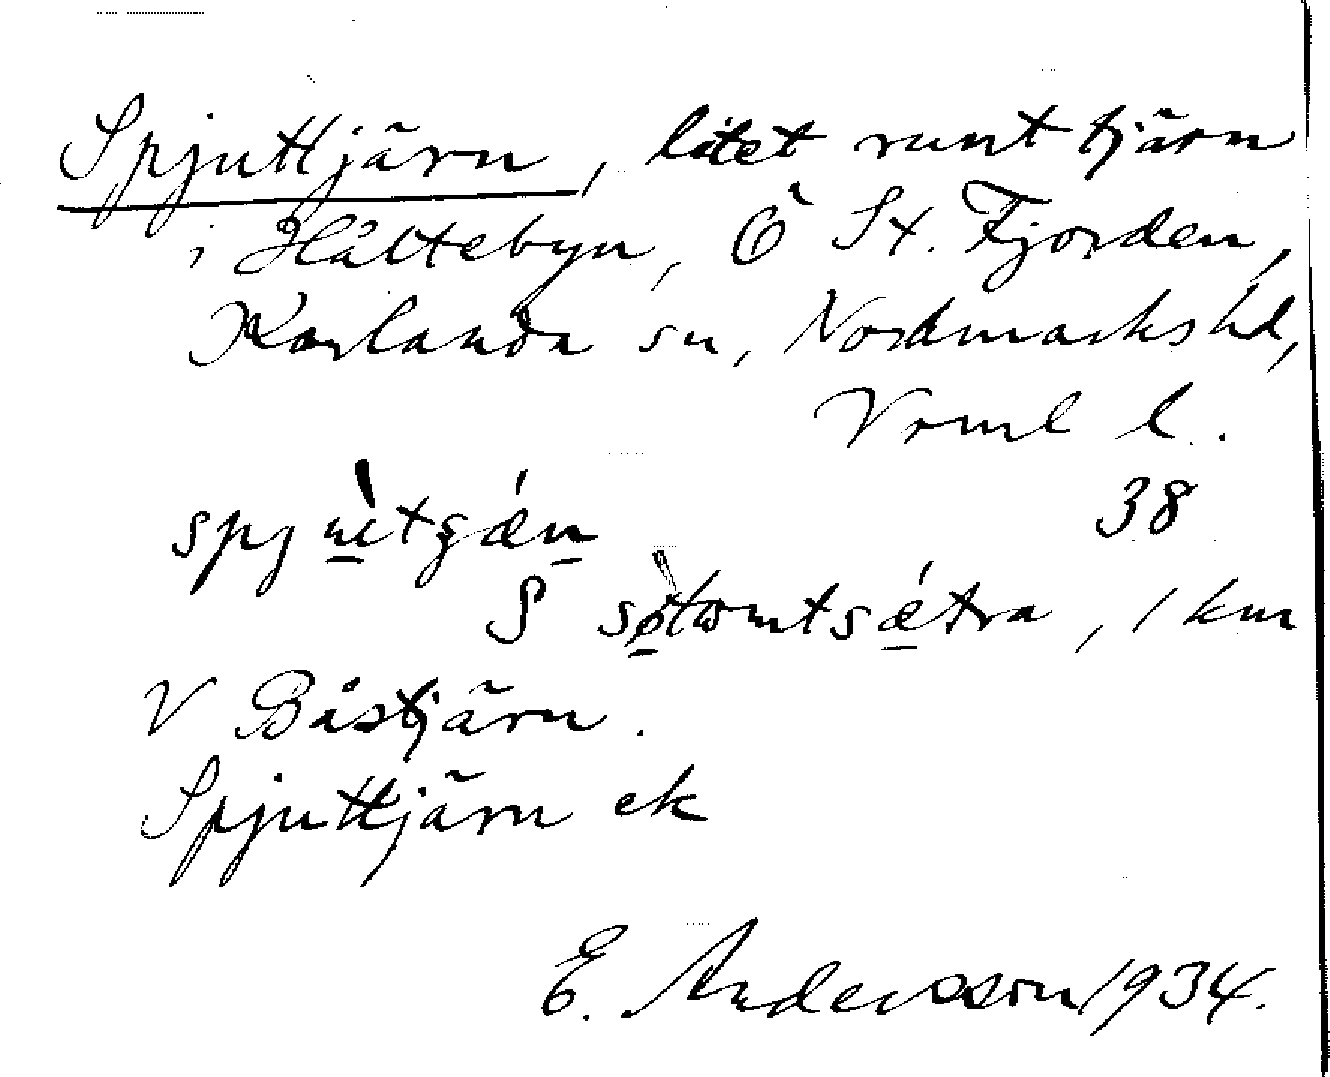 Spjuttjärn, litet runt tjärn
i Håltebyn, Ö St. Fjorden,
Karlanda sn, Nordmarks hd,
Vrml l.
38
spjùtgǽn
S sø̀tomtsǽtra, 1 km
V Båstjärn.
Spjuttjärn ek
E. Andersson 1934.